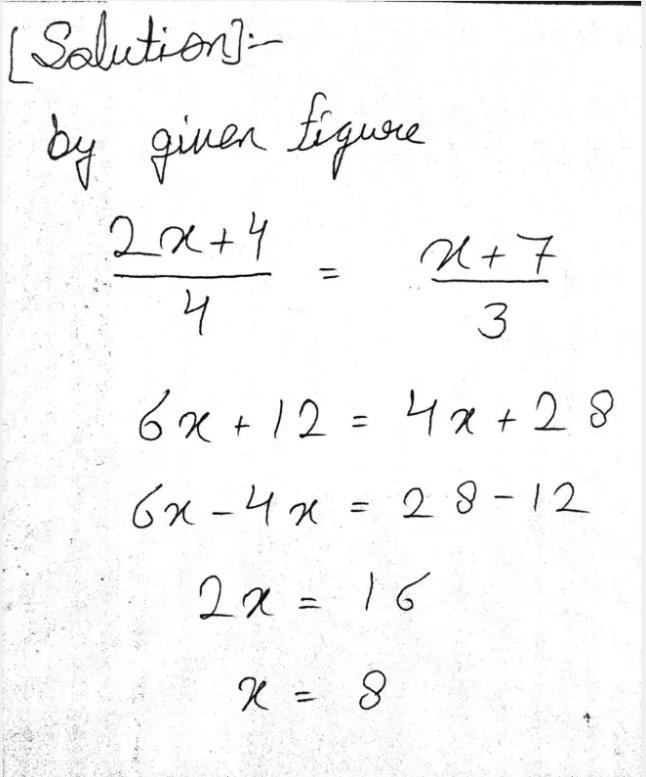 [Solution]:-
by given figure
2x+4/4 = x+7/3
6x+12 = 4x+28
6x-4x = 28-12
2x = 16
x = 8